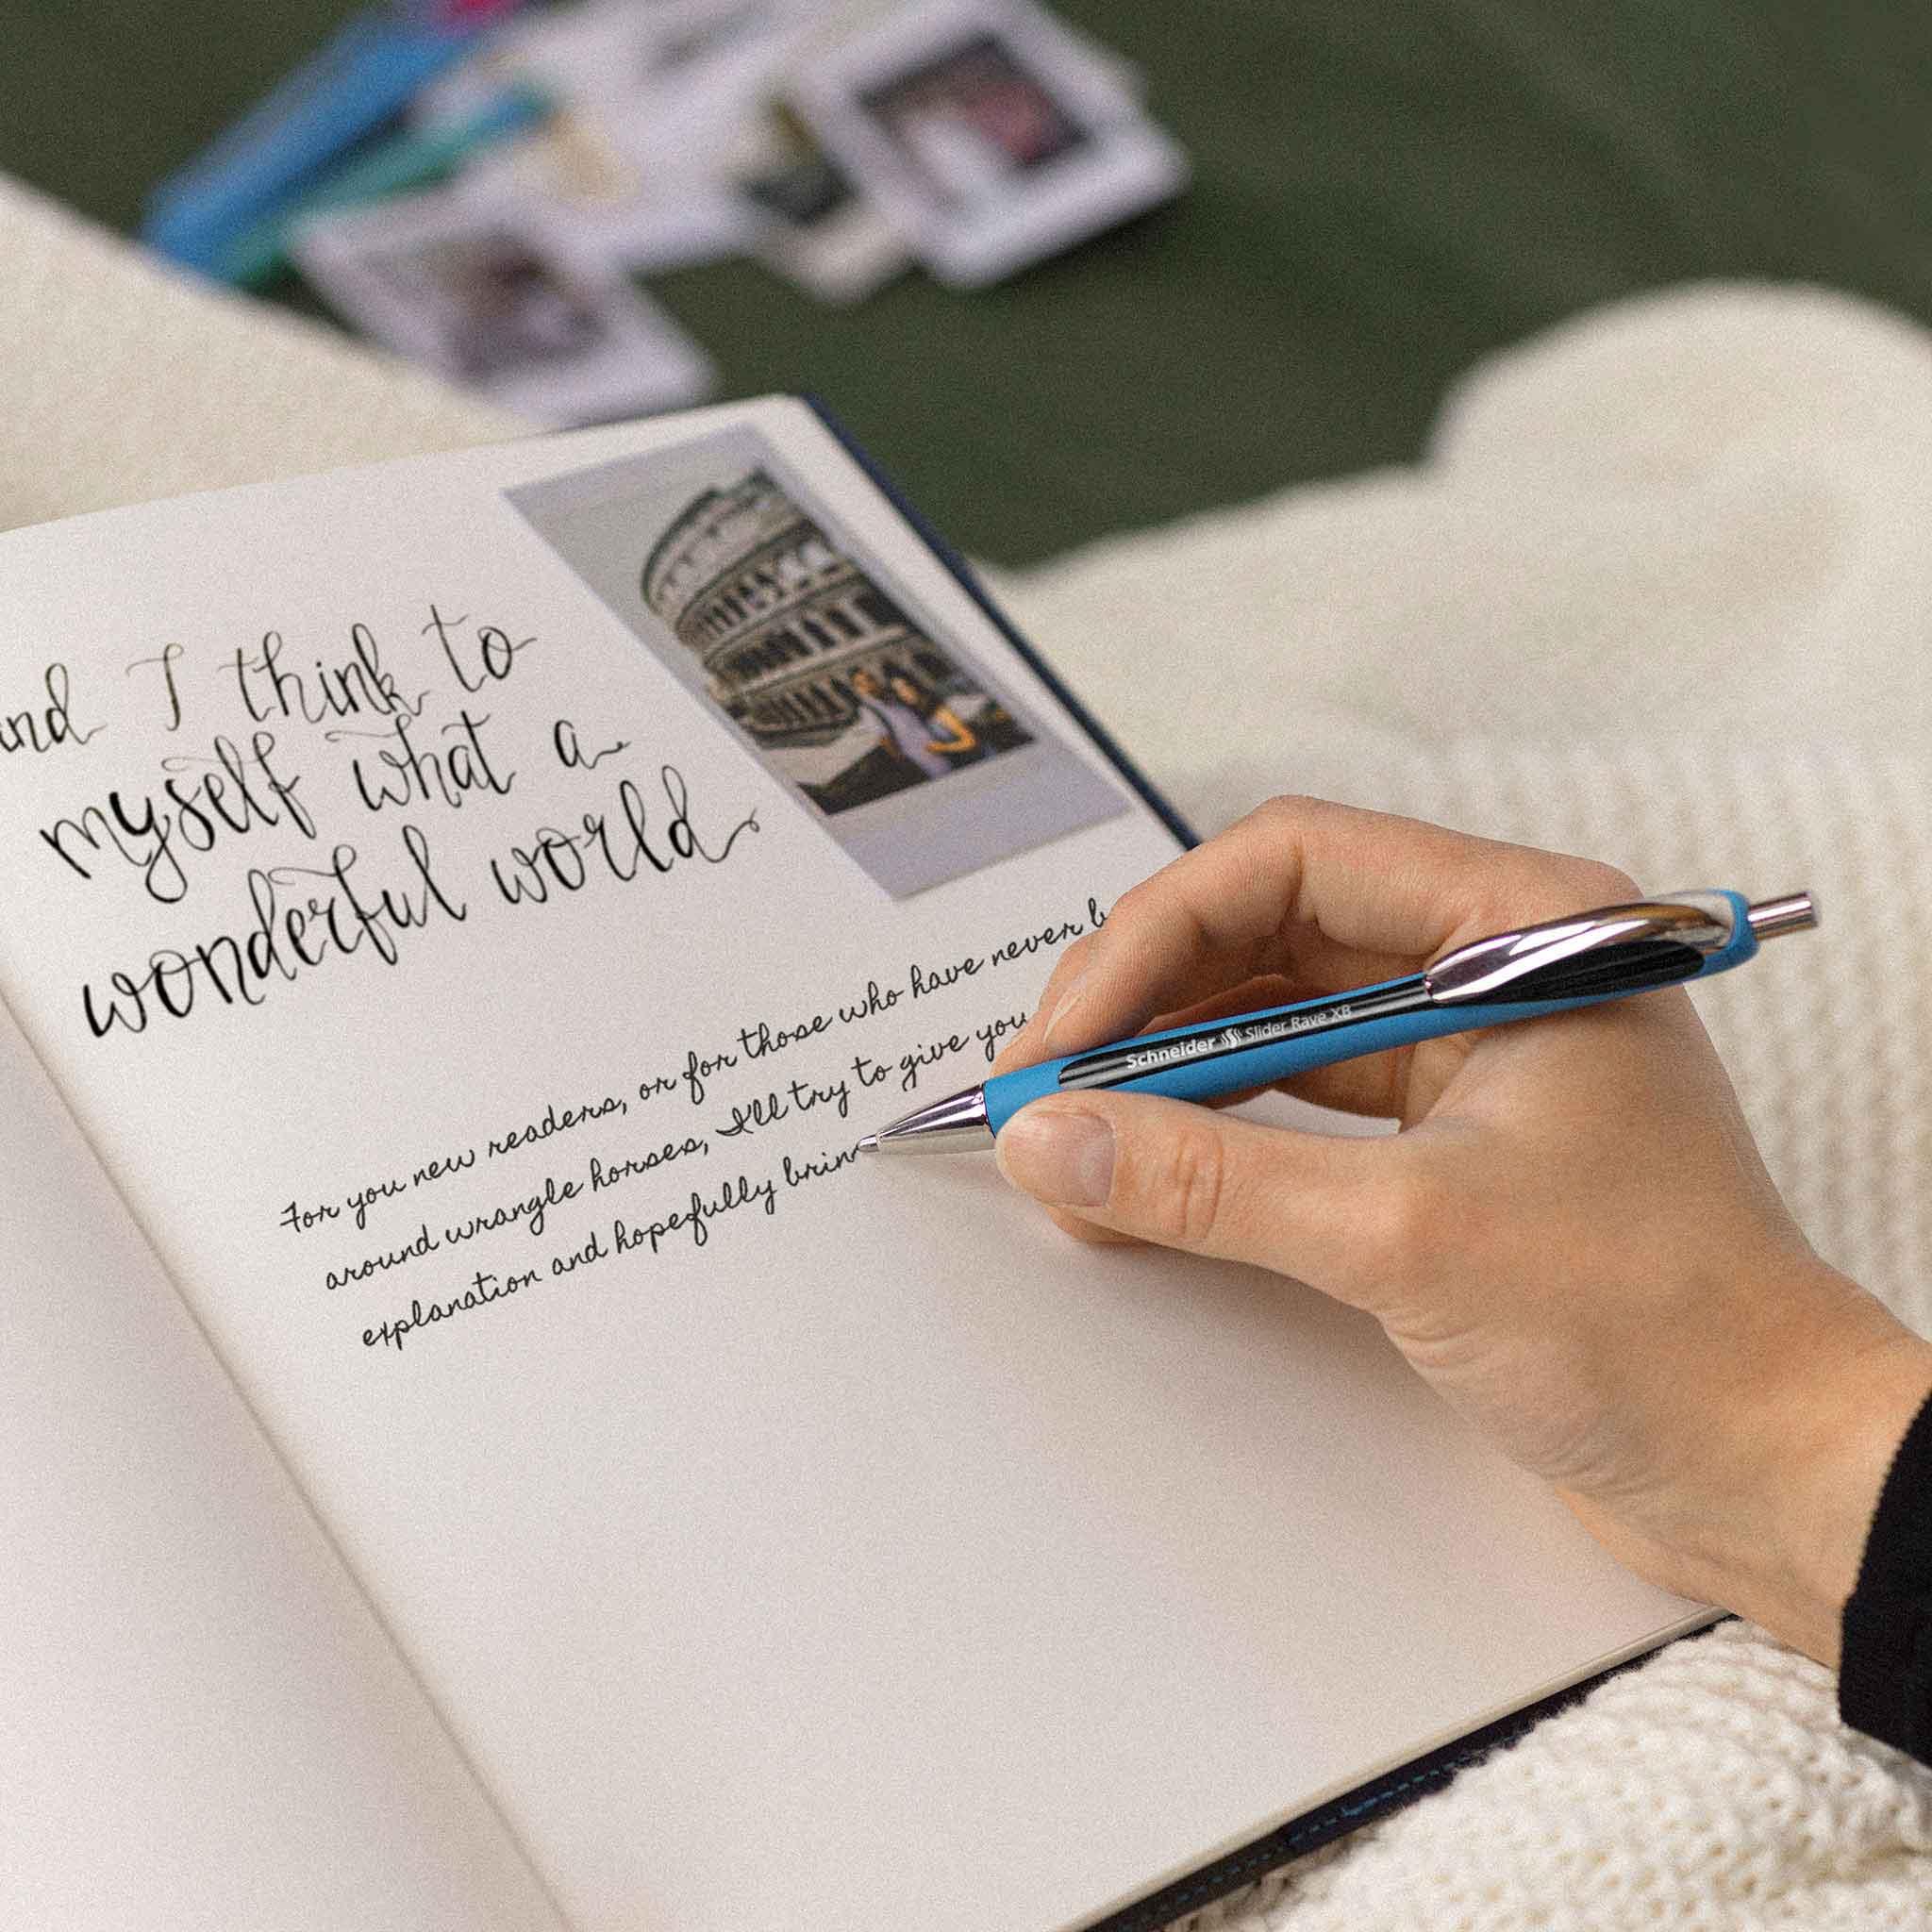 and I think to
myself what a
wonderful world
For you new readers, or for those who have never b
around wrangle horses, I'll try to give you
explanation and hopefully brin
Schneider Slider Rave XB